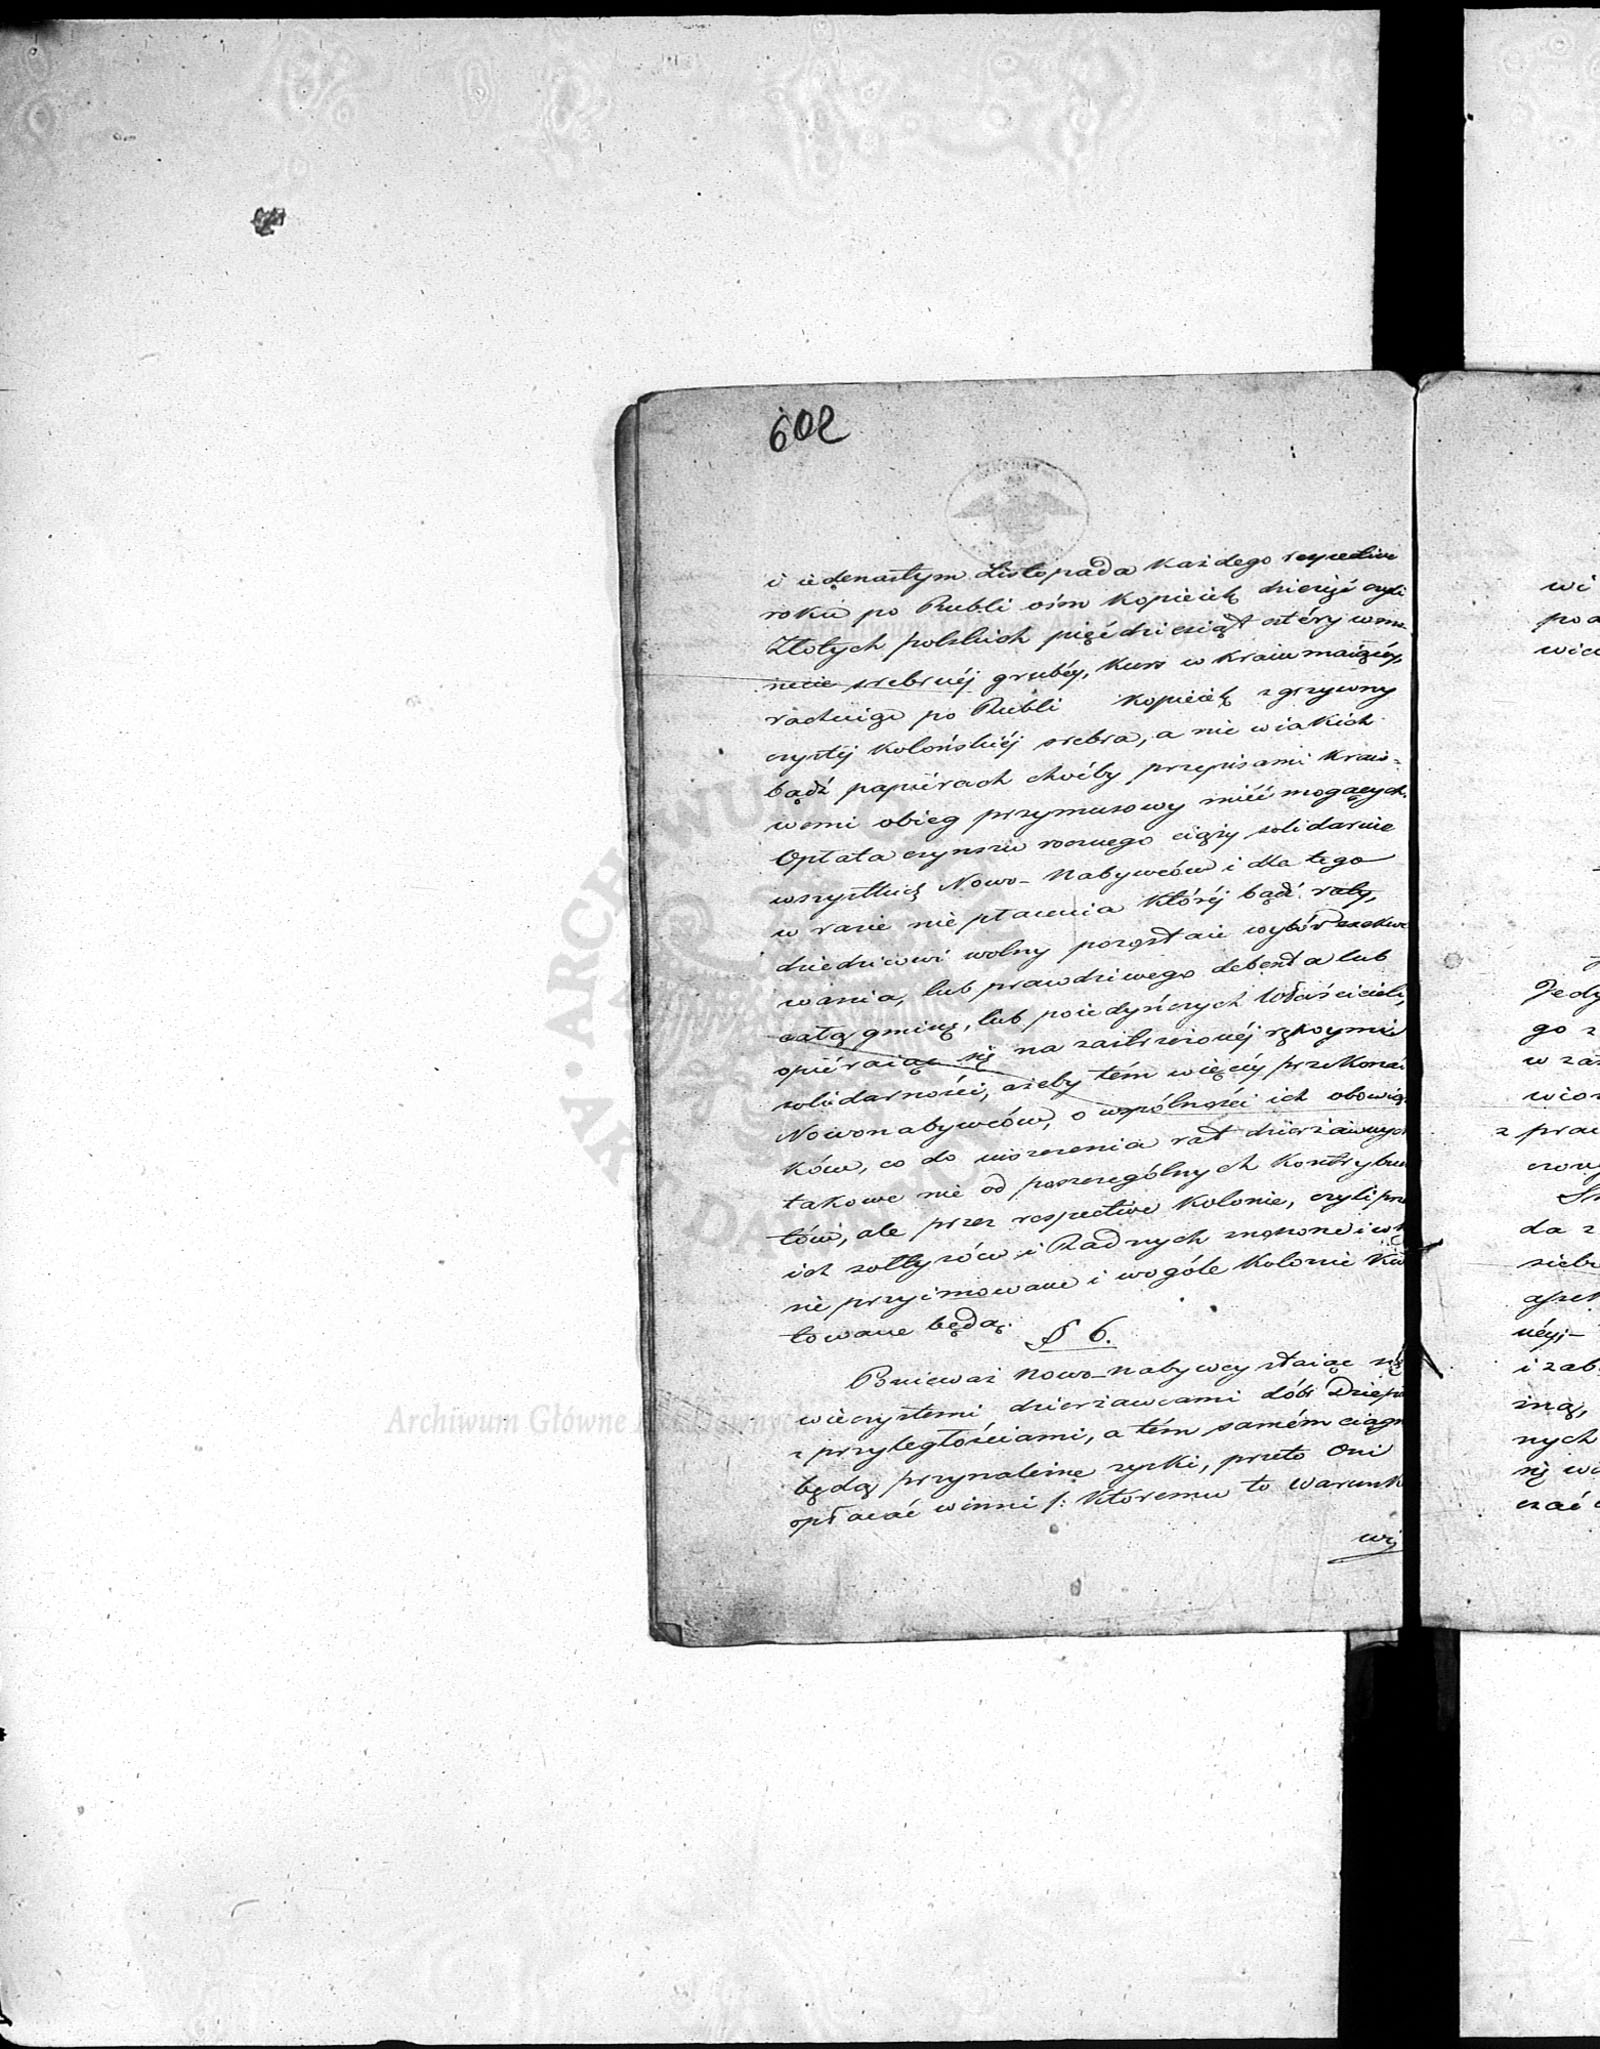 602
i iedenastym Listopada każdego respective
roku po Rubli ośm kopieiek dziesięć czyli
Złotych polskich pięćdziesiąt cztéry w mo-
necie srebrnéj grubéy, kurs w kraiu maiącéy,
rachuiąc po Rubli kopieiek z grzywny
czystéj kolońskiéj srebra, a nie w iakich
bądź papiérach choéby przepisami kraio-
wemi obieg przymusowy miéć mogących.
Opłata czynszu rocznego ciąży solidarnie
wszystkich Nowo-Nabywców i dla tego
w razie nie płacenia któréj bądź raty,
dziedzicowi wolny pozostaie wybór exekwo
wania, lub prawdziwego debenta lub
całą gminę, lub poiedyńczych właścicieli,
opiéraiąc się na zastrzeżonéj rękoymi
solidarności, ażeby tém więcéy przekonać
Nowonabywców, o wspólności ich obowiąz
ków, co do uiszczenia rat dzierżawnych
takowe nie od poszczególnych kontrybuen
tów, ale przez respective kolonie, czyli prze
ich sołtysów i Radnych znoszone i w
nie przyimowane i wogóle kolonie kwi
towane będą.
§ 6.
Poniewaz nowo-nabywcy staiąc się
wieczystemi dzierżawcami dóbr
z przyległościami, a tém samém ciągn
będą przynależne zyski, przeto oni
opłacać winni /: któremu to warunk
wi
wi
po
wie
Jedy
go z
w za
wion
z pra
czon
da z
siebi
néy,-
i zab
nych
się wi
czać
Archiwum Główne Akt Dawnych